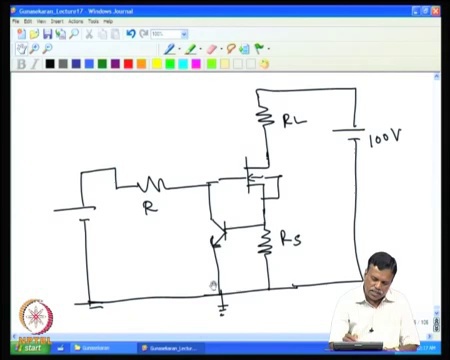 Gunasekaran_Lecture17 - Windows Journal
File Edit View Insert Actions Tools Help
100%
B I
RL
100V
R
RS
start
Gunasekaran
Gunasekaran_Lectur...